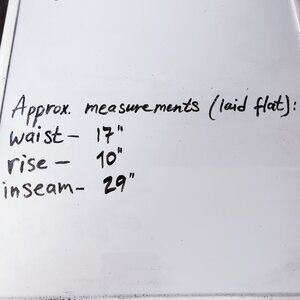 Approx. measurements (laid flat):
waist - 17"
rise - 10"
inseam - 29"